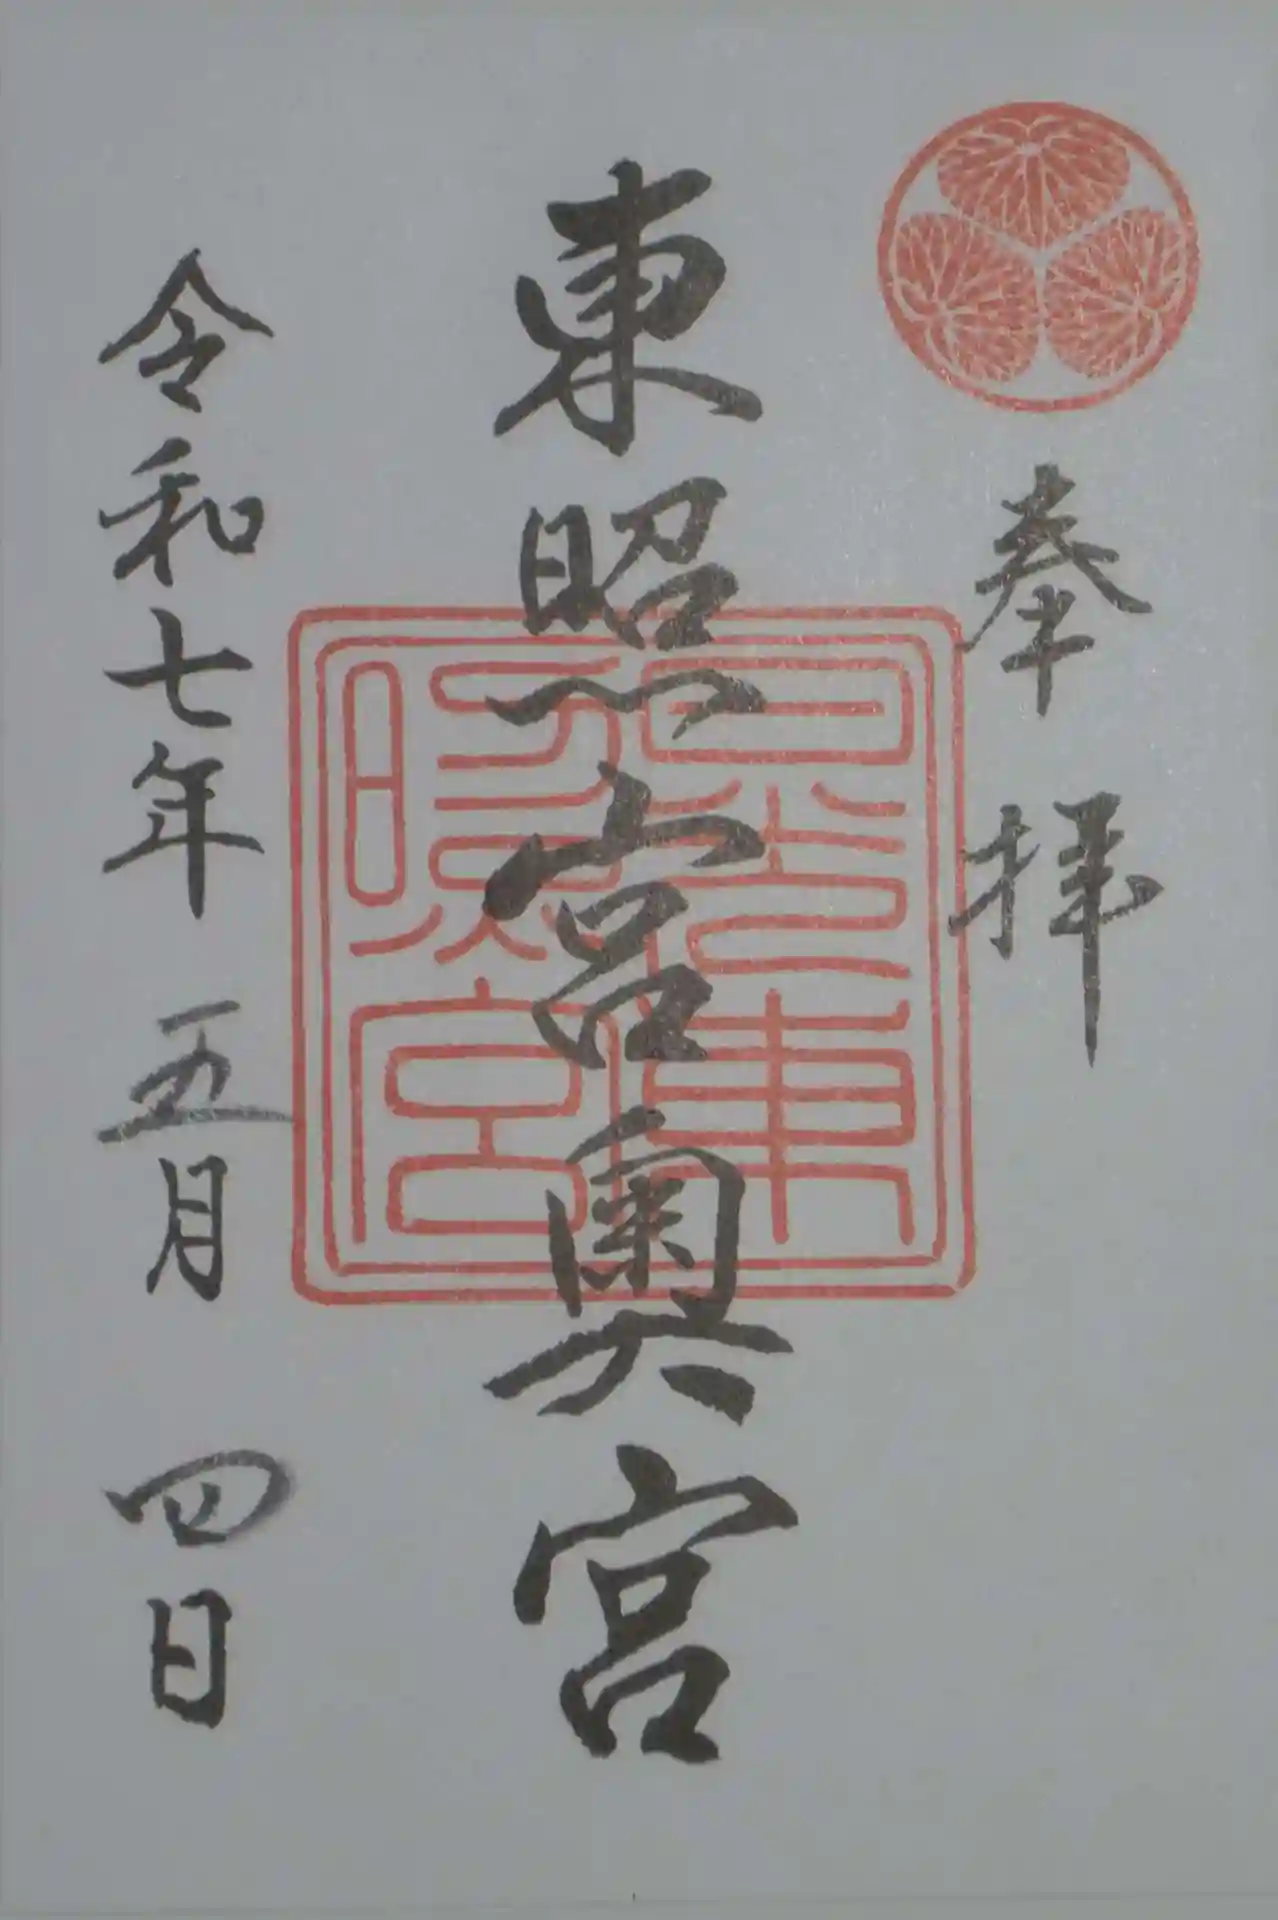 奉拝
東照宮奥宮
日光東照宮
令和七年五月四日